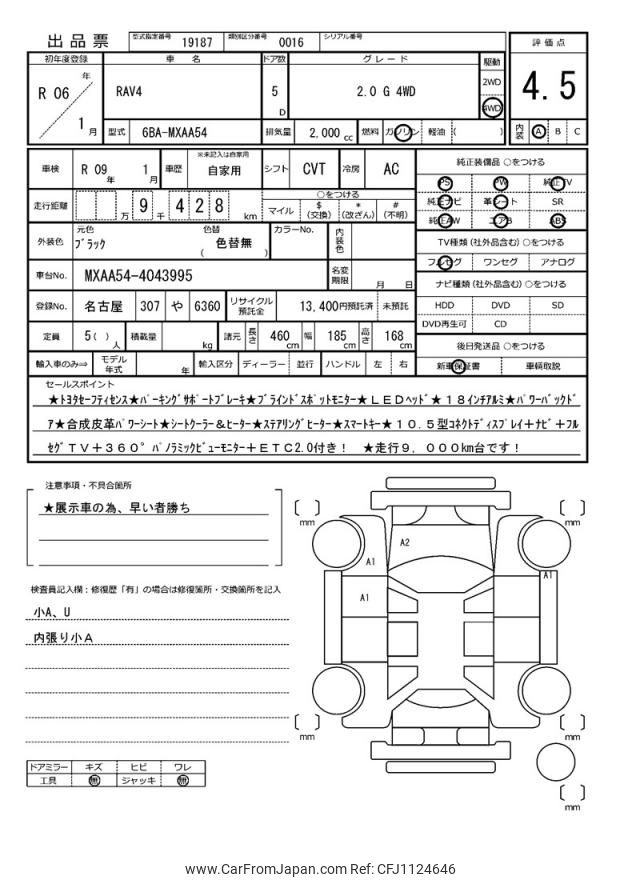 出品票 型式指定番号 19187 類別区分番号 0016 シリアル番号
評価点
4.5
内装 A B C
初年度登録 車名 ドア数 グレード 駆動
R 06 年 1 月
RAV4 5 D 2.0 G 4WD
2WD
4WD
型式 6BA-MXAA54 排気量 2,000 cc 燃料 ガソリン 軽油 ( )
車検 R 09 年 1 月 車歴 ※未記入は自家用 自家用 シフト CVT 冷房 AC
走行距離 万 9 千 4 2 8 km
○をつける
マイル $(交換) *(改ざん) #(不明)
外装色 元色 ブラック 色替 色替無 ( ) カラーNo. 内装色
車台No. MXAA54-4043995 名変期限 月 日
登録No. 名古屋 307 や 6360 リサイクル預託金 13,400円預託済 未預託
定員 5( ) 人 積載量 kg 諸元 長さ 460 cm 幅 185 cm 高さ 168 cm
輸入車のみ⇒ モデル年式 年 輸入区分 ディーラー ・ 並行 ハンドル 左 右
純正装備品 ○をつける
PS PW 純正TV
純正ナビ 革シート SR
純正AW エアB ABS
TV種類(社外品含む) ○をつける
フルセグ ワンセグ アナログ
ナビ種類(社外品含む) ○をつける
HDD DVD SD
DVD再生可 CD
後日発送品 ○をつける
新車保証書 車輌取説
セールスポイント
★トヨタセーフティセンス★パーキングサポートブレーキ★ブラインドスポットモニター★ＬＥＤヘッド★１８インチアルミ★パワーバックド
ア★合成皮革パワーシート★シートクーラー＆ヒーター★ステアリングヒーター★スマートキー★１０．５型コネクトディスプレイ＋ナビ＋フル
セグＴＶ＋３６０°パノラミックビューモニター＋ＥＴＣ2.0付き！ ★走行９．０００km台です！
注意事項・不具合箇所
★展示車の為、早い者勝ち
検査員記入欄：修復歴「有」の場合は修復箇所・交換箇所を記入
小A、U
内張り小A
ドアミラー キズ ヒビ ワレ
工具 無 ジャッキ 無
mm
mm
A2
A1
A1
A1
mm
mm
mm
www.CarFromJapan.com Ref: CFJ1124646